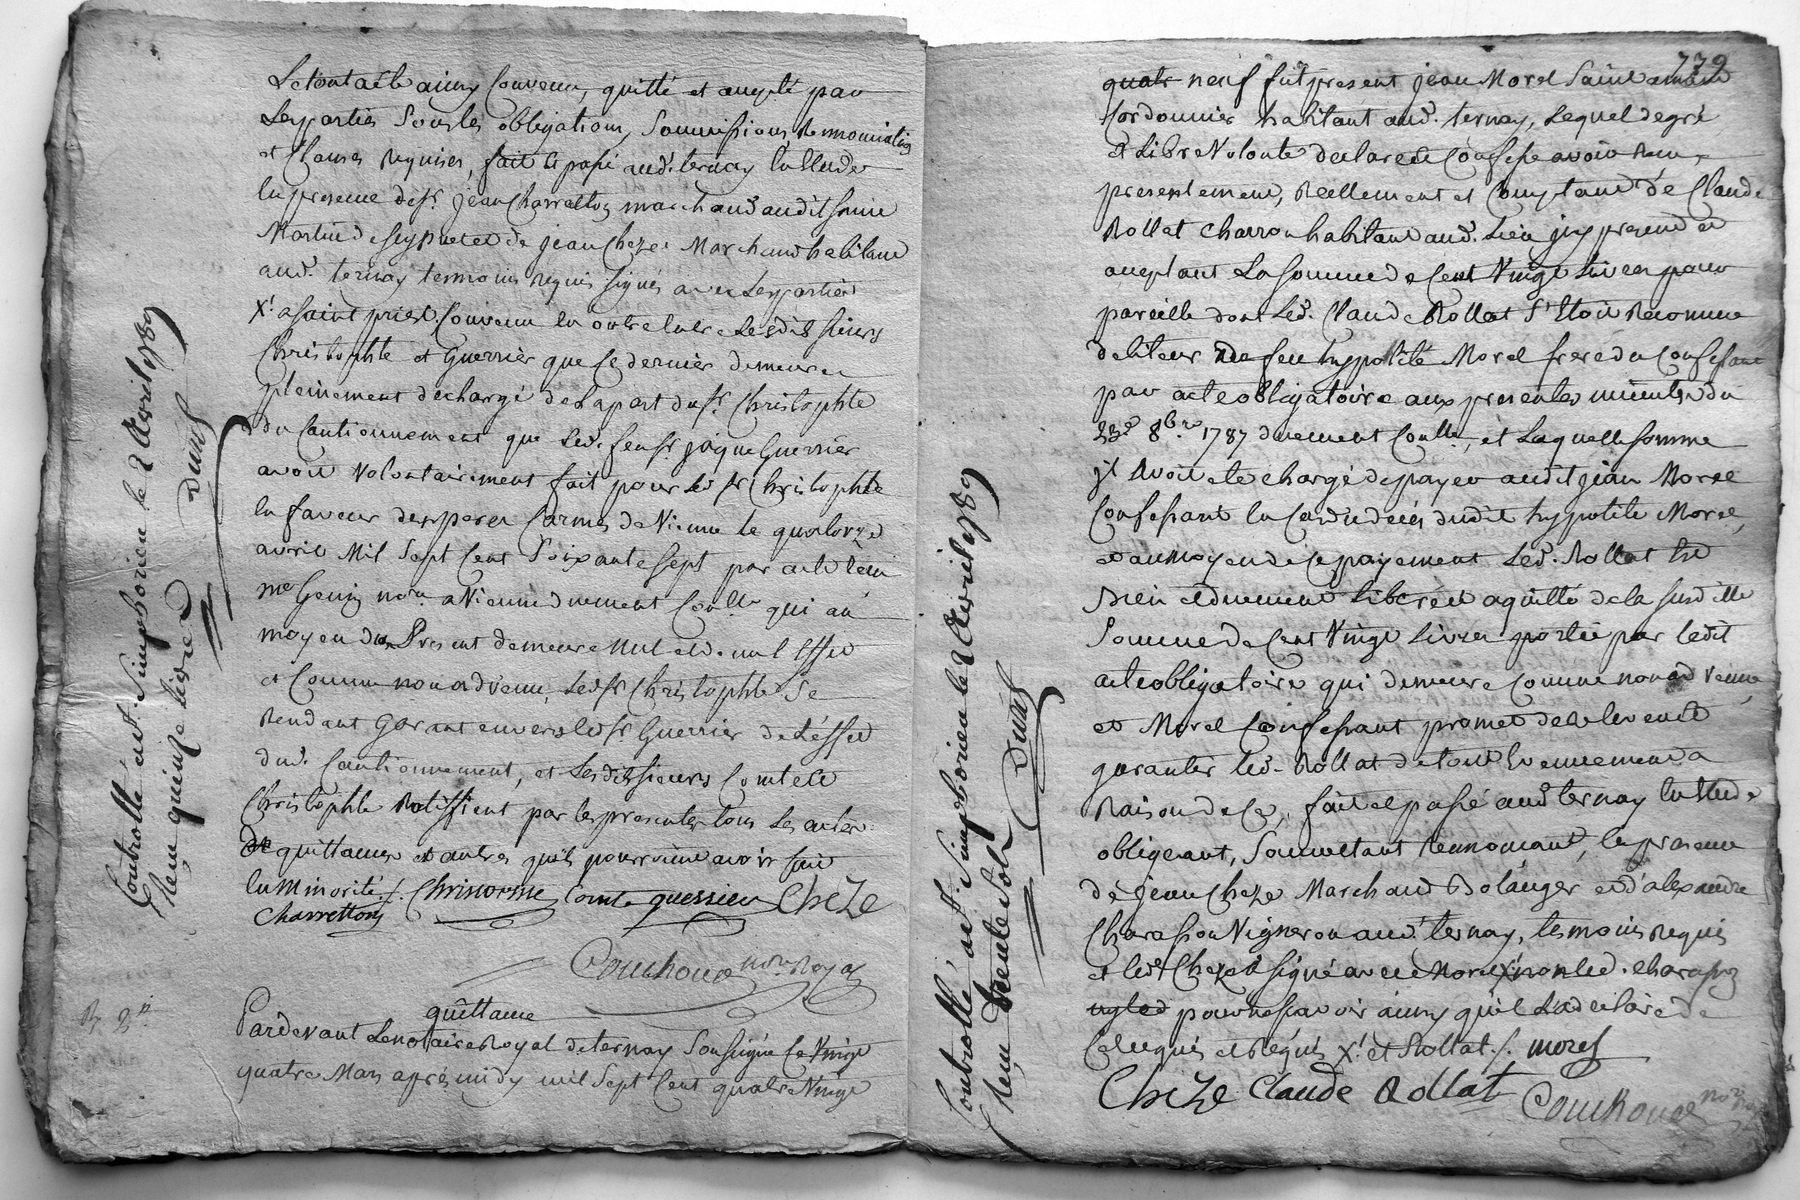 Le tout a été ainsy Convenu, quitté et accepté par
Les parties Sous les obligations, Soumissions Renonciations
et Clauses requises, fait et passé aud. ternay Etude
En presence de sr. jean Charretton marchand audit
de jean Cheze Marchand habitant
aud. ternay temoins requis signés avec Les parties
Convenu En outre Entre Lesdits sieurs
Christophle et Guerrier que Ce dernier demeure
pleinement dechargé de La part du sr. Christophle
du Cautionnement que Led. feu sr. jaque Guerrier
avoit volontairement fait pour Led. sr. Christophle
En faveur des peres Carmes de Vienne le quatorze
avril Mil Sept Cent Soixante sept par acte Reçu
me Genin nore. a Vienne duement Conllé. qui au
moyen du Present demeure Nul et de nul Effet
et Comme non advenu, Led. sr. Christophle Se
Rendant Garant envers led. sr. Guerrier de L'effet
dud. Cautionnement, et Lesdits sieurs Comte et
Christophle Ratiffient par les presentes tous Les actes
de quittances et autres qu'ils pourroient avoir fait
En Minorité /. Chrisorme Comte guessieu CheZe
Charretton
Couchoud nore. Royal
quittance
Pardevant Le notaire Royal de ternay Soussigné Ce Vingt
quatre Mars après midy mil Sept Cent quatre Vingt
Controllé a st. Simphorien le 2 Avril 1789
Reçu quinze sols
Duret
779
quatr neuf fut present jean Morel Saint
Cordonnier habitant aud. ternay, Lequel de gré
et Libre Volonté declare et Confesse avoir Reçu
presentement, Réellement et Comptant de Claude
Rollat Charron habitant aud. Lieu jcy present et
acceptant La somme de Cent Vingt Livres pour
pareille dont Led. Claude Rollat S'Etoit Reconnu
debiteur de feu hyppolité Morel frere du Confessant
par acte obligatoire aux presentes minutes du
23e 8bre 1787 duement Conllé, et Laquelle somme
jl Avoit eté chargé de payer audit jean Morel
Confessant En Cas de decés dudit hyppolite Morel,
et au moyen de Ce payement Led. Rollat Est
Bien et duement Libéré et aquitté de la susditte
Somme de Cent Vingt Livres portée par ledit
acte obligatoire qui demeure Comme non ad Venu
et Morel Confessant promet de relever et
garantir led. Rollat de tout Evennement a
Raison de Ce, fait et passé aud. ternay Etude
obligeant, Soumettant Renonçant, En presence
de jean Cheze Marchand Bolanger et d'alexandre
Charasson Vigneron aud. ternay, temoins Requis
et led. Cheze a signé avec Morel X non led. charasson
pour ne sçavoir ainsy qu'il L'a declaré de
Ce enquis et Requis X et Rollat /. morel
CheZe Claude Rollat Couchoud nore.
Controllé a st. Simphorien le 2 Avril 1789
Reçu trente sols
Duret